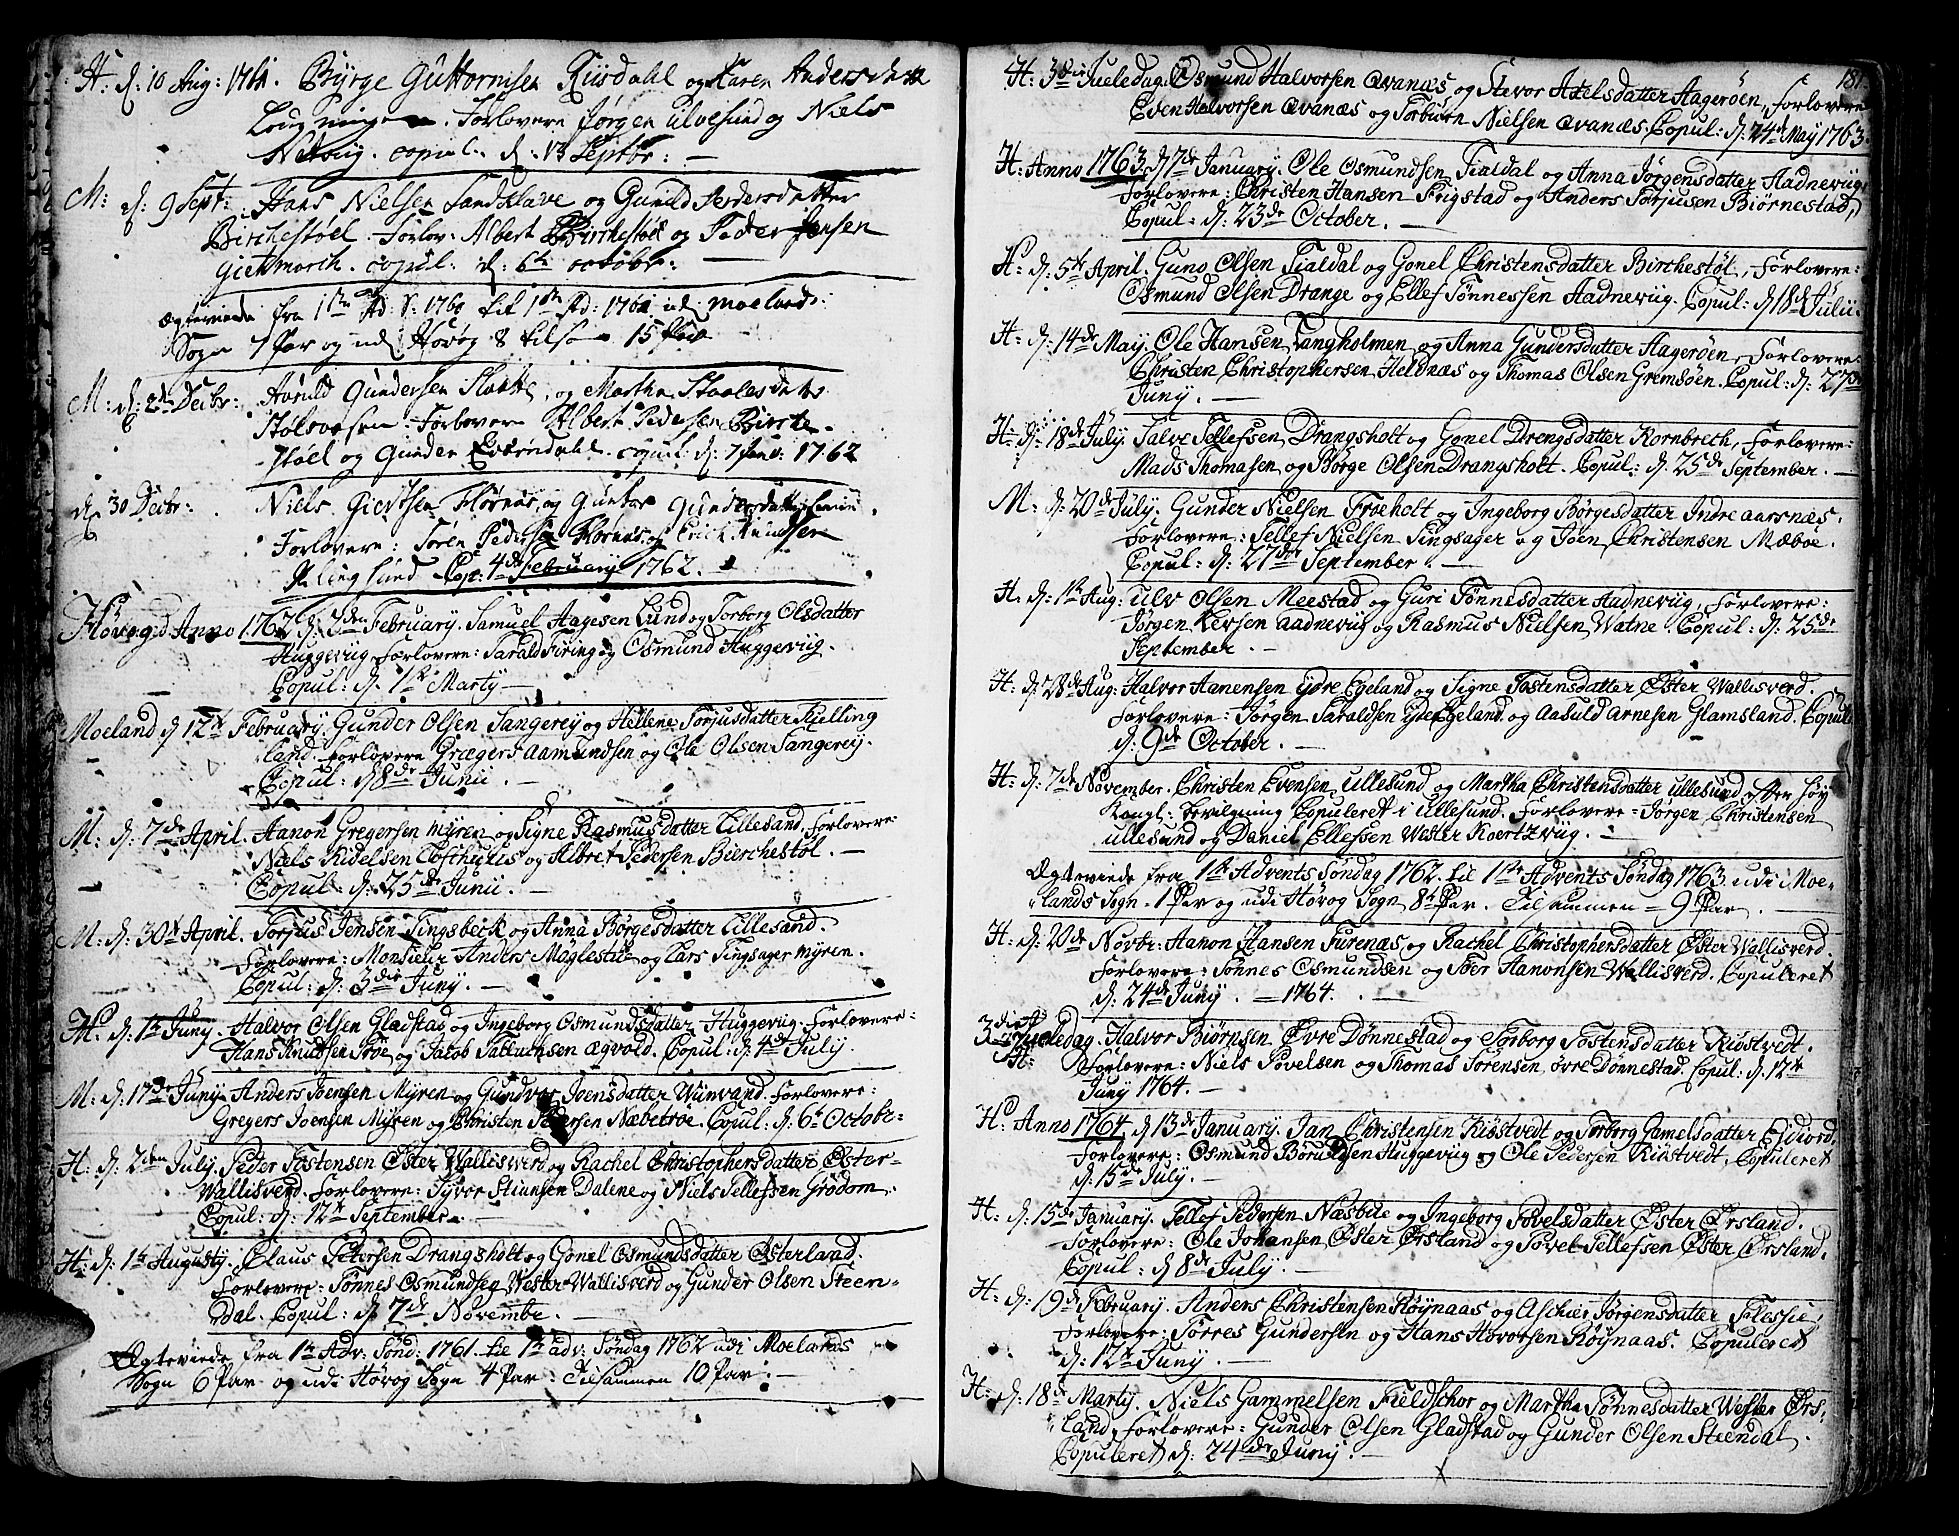 H: d: 10 Aug: 1761. Byrge Guttormsen Riisdahl og Karen Andersdatt
Forlovere Jørgen Ulvesund og Niels
copul. d: 13 Septbr: —
M: d: 9 Sept: Hans Nielsen Sandklave og Gunild Pedersdatter
Birchestøel. Forlov: Albert Birchestøel og Peder Jensen
copul: d: 6te octobr: —
Ægteviede fra 1ste Ad: S: 1760 til 1ste Ad: 1761 ud Moelands
Sogn 7 Par og ud Høvog 8 tils 15 Par
M: d: 2de Decbr: Haruld Gundersen og Martha Staalesdatt
Stølsvesen. Forlovere Albert Pedersen Birche-
støel og Gunder copul: d: 7 Janv: 1762
d. 30 Decbr: Niels Giertsen Flørnæs, og Gunbor Gundersdatter
Forlovere: Søren Pedersen Flørnæs og Erich Knudsen
Klinglund Cop: 4de February 1762. —
Høvog d Anno 1762 d: 3den February. Samuel Aagesen Lund og Torborg Olsdatter
Huggeviig, Forlovere: Tarald Tiring og Osmund Huggeviig.
Copul: d. 1ste Marty —
Moeland d 12te February. Gunder Olsen Tangerey og Hellene Torjusdatter Kulling
land. Forlovere Grægers Aamundsen og Ole Olsen Tangerey.
Copul: d 8de Junii. —
M: d: 7de April. Aanon Gregersen Myren og Signe Rasmusdatter Lillesand, Forlovere
Niels Kidelsen Tofthulus og Albret Pedersen Bierchestøl. —
Copul: d: 25de Junii. —
M: d: 30te April. Torjus Jensen Tingsbeck og Anna Børgesdatter Lillesand.
Forlovere: Monsieur Anders Møglestue og Lars Tingsager Myren.
Copul: d: 3die Juny. —
H: d: 1te Juny. Halvor Olsen Gladstad og Ingeborg Osmundsdatter Huggeviig. Forlovere:
Hans Knudsen Trøe og Jacob Tallachsen Ægvold. Copul: d: 4de July.
M: d: 17de Juny Anders Joensen Myren og Gundvor Joensdatter Wünvand. Forlovere:
Gregers Joensen Myren og Christen Pedersen Næbetroe. Copul: d: 6te Octobr:
H: d: 2den July. Peder Tostensen Øster Wallisverd og Rachel Christophersdatter Øster-
Wallisverd. Forlovere: Syvor Stiansen Dalene og Niels Tellefsen Grødom.
Copul: d: 12te September. —
H: d: 1te Augusty. Claus Petersen Drangsholt og Gonel Osmundsdatter Østerland.
Forlovere: Tønnes Osmundsen Wester Wallisverd og Gunder Olsen Steen-
Dal. Copul: d. 7de Novembr. —
Ægteviede fra 1te Adv: Sönd: 1761. til 1te adv: Söndag 1762 udi Moelands
Sogn 6 Par og udi Høvog Sogn 4 Par: Tilsammen 10 Par: —
181
H: 3die Jueledag. Osmund Halvorsen Qvanæs og Stevor Axelsdatter Aagerøen, Forlovere
Even Halvorsen Qvanæs og Torbiörn Nielsen Qvanæs. Copul: d: 24de May 1763.
H: Anno 1763 d 7de January. Ole Osmundsen Tialdal og Anna Jørgensdatter Aadneviig
Forlovere: Christen Hansen Frigstad og Anders Torjusen Biørnestad,
Copul: d: 23de October. —
H: d. 5te April. Guno Olsen Tialdal og Gonel Christensdatter Birchestøl, Forlovere:
Osmund Olsen Drange og Ellef Tönnessen Aadneviig. Copul: d 18de Julii.
H: d: 14de May. Ole Hansen Langholmen og Anna Gundersdatter Aagerøen, Forlovere:
Christen Christophersen Heldnæs og Thomas Olsen Grimsøen. Copul: d: 27de
Juny. —
H: d: 18de July. Salve Tellefsen Drangsholt og Gonel Drengsdatter Kornbrech, Forlovere:
Mads Thomasen og Børge Olsen Drangsholt. Copul: d: 25de September. —
M: d: 20de July. Gunder Nielsen Froeholt og Ingeborg Børgesdatter Indre Aarsnæs.
Forlovere: Tellef Nielsen Tingsager og Joen Christensen Mæboe.
Copul: d: 27de September. —
H: d: 1te Aug: Ulv Olsen Meestad og Guri Tønnesdatter Aadneviig, Forlovere:
Jørgen Iversen Aadneviig og Rasmus Nielsen Watne. Copul: d: 25de
September. —
H: d: 28de Aug: Halvor Aanensen ydre Egeland og Signe Tostensdatter Øster Wallisverd.
Forlovere: Jørgen Taraldsen ydre Egeland og Aasuld Arnesen Glamsland. Copul
d: 9de October. —
H: d: 7de November. Christen Evensen Ullesund og Martha Christensdatter Ullesund efter høy
Kongl: Bevilgning Copuleret i Ullesund. Forlovere: Jørgen Christensen
Ullesund og Daniel Ellefsen Wester Koertzviig. —
Ægteviede fra 1te Advents Søndag 1762 til 1te Advents Søndag 1763 udi Moe-
lands Sogn 1 Par og udi Høvog Sogn 8te Par. Tilsammen = 9 Par. —
H: d: 20de Novbr: Aanon Hansen Furenæs og Rachel Christophersdatter Øster Wallisverd.
Forlovere: Tønnes Osmundsen og Toer Aanonsen Wallisverd. Copuleret
d: 24de Juny. — 1764. —
3die Jueledag. Halvor Biørnsen Øvre Dønnestad og Torborg Tostensdatter Kiøstvedt.
H: Forlovere: Niels Povelsen og Thomas Sørensen, øvre Dønnestad. Copul: d. 12te
Juny 1764. —
H: Anno 1764 d 13de January. Jan Christensen Kiøstvedt og Torborg Gamelsdatter Eidiord,
Forlovere: Osmund Børuldsen Huggeviig og Ole Pedersen Kiøstvedt. Copuleret
d. 15de July. —
H: d: 15de January. Tellef Pedersen Næsbue og Ingeborg Povelsdatter Øster Ørsland.
Forlovere: Ole Johansen Øster Ørsland og Povel Tellefsen Øster Ørsland.
Copul: d 8de July. —
H: d: 19de February. Anders Christensen Røynaas og Aschær Jørgensdatter
Forlovere: Torres Gundersen og Hans Hovorsen Røynaas. Copuleret
d: 12te Juny. —
H: d: 18de Marty. Niels Gammelsen Fieldschor og Martha Tønnesdatter Wester Ørs-
land, Forlovere: Gunder Olsen Gladstad og Gunder Olsen Steendal.
Copuleret d: 24de Juny. —